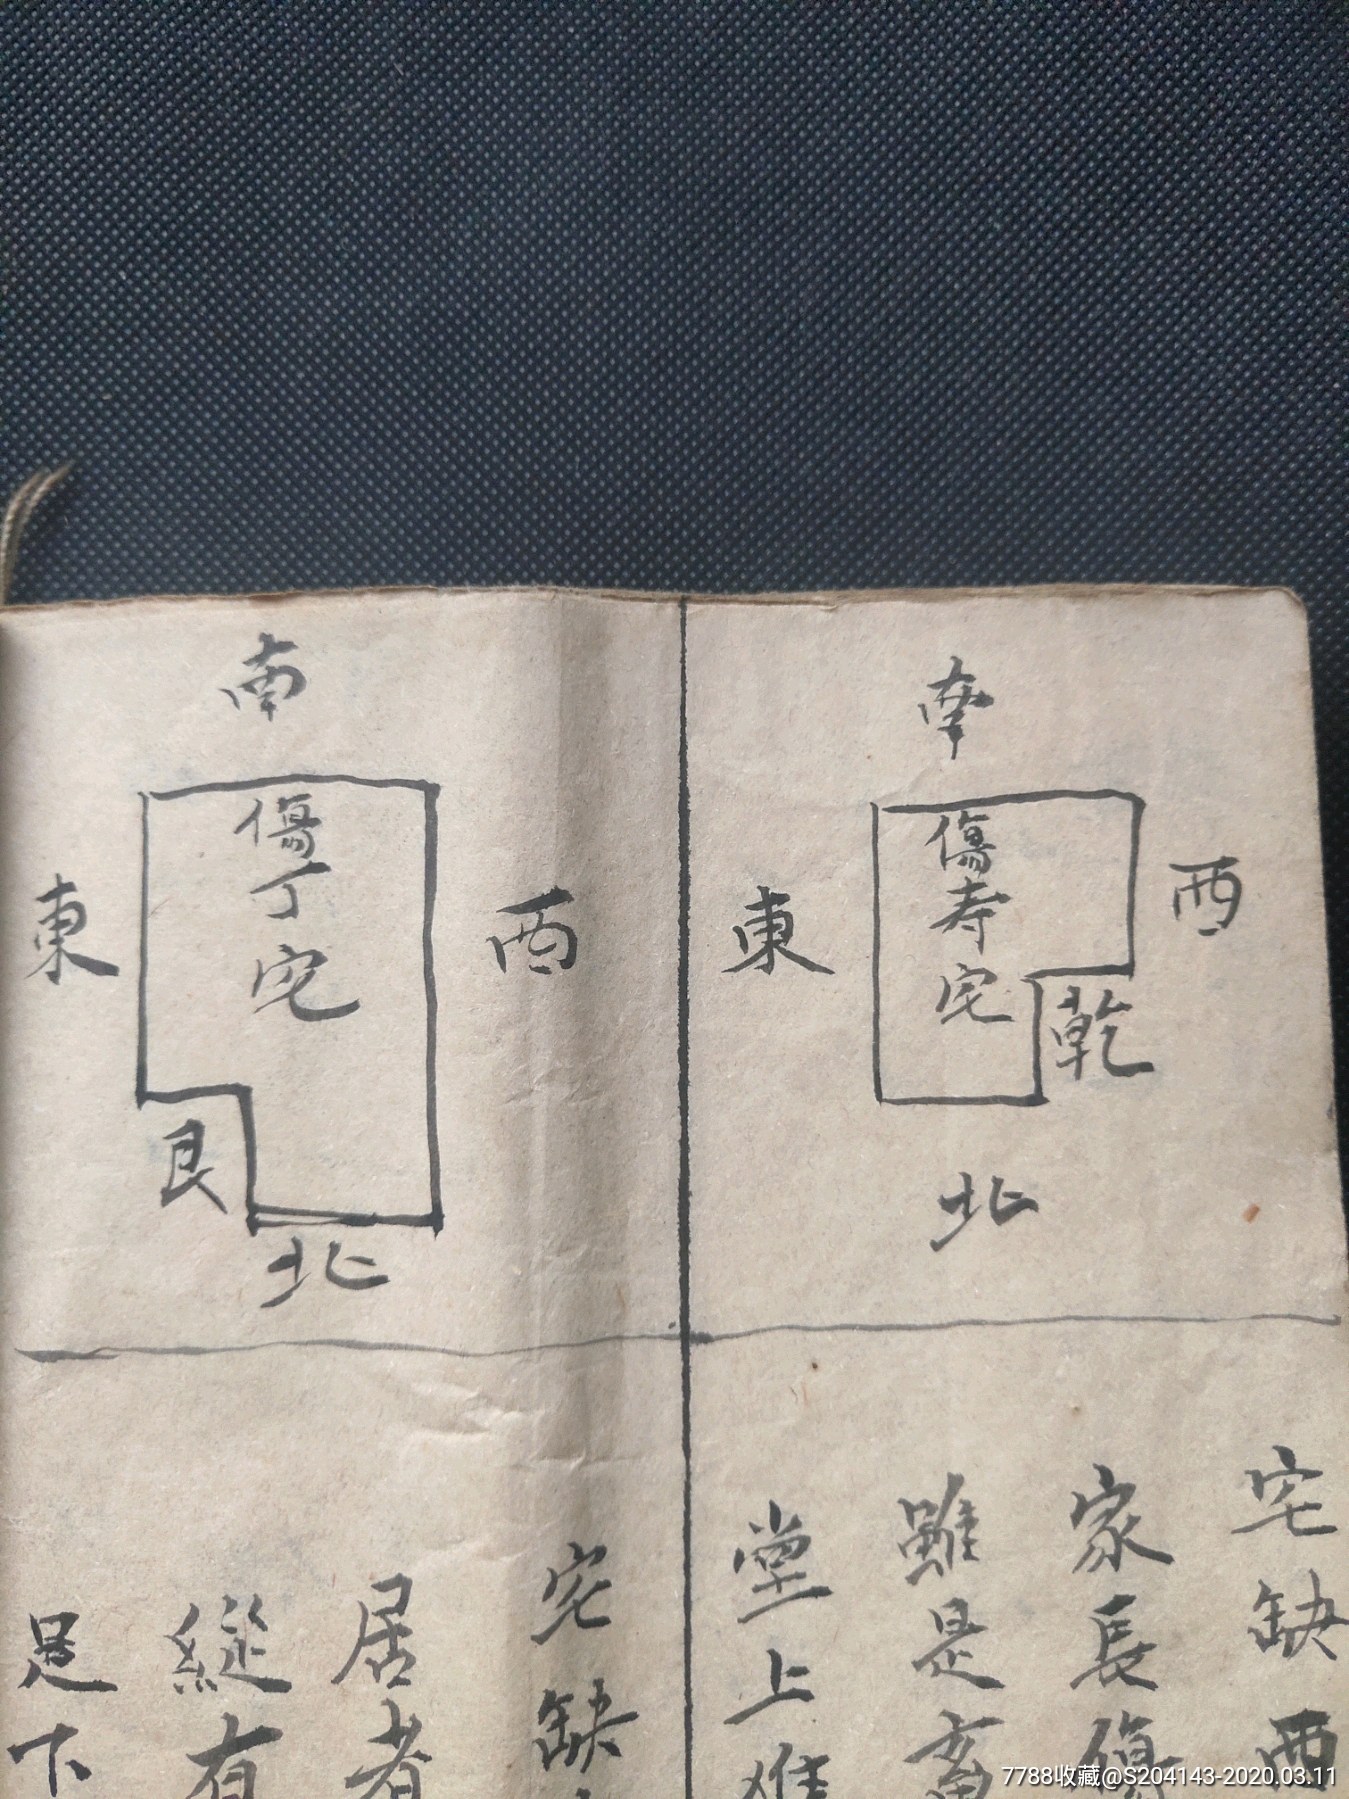 南
傷寿宅
東
西
乾
北
宅缺西
家長傷
雖是畜
堂上难
南
傷丁宅
東
西
艮
北
宅缺
居者
縱有
足下
7788收藏@S204143-2020.03.11